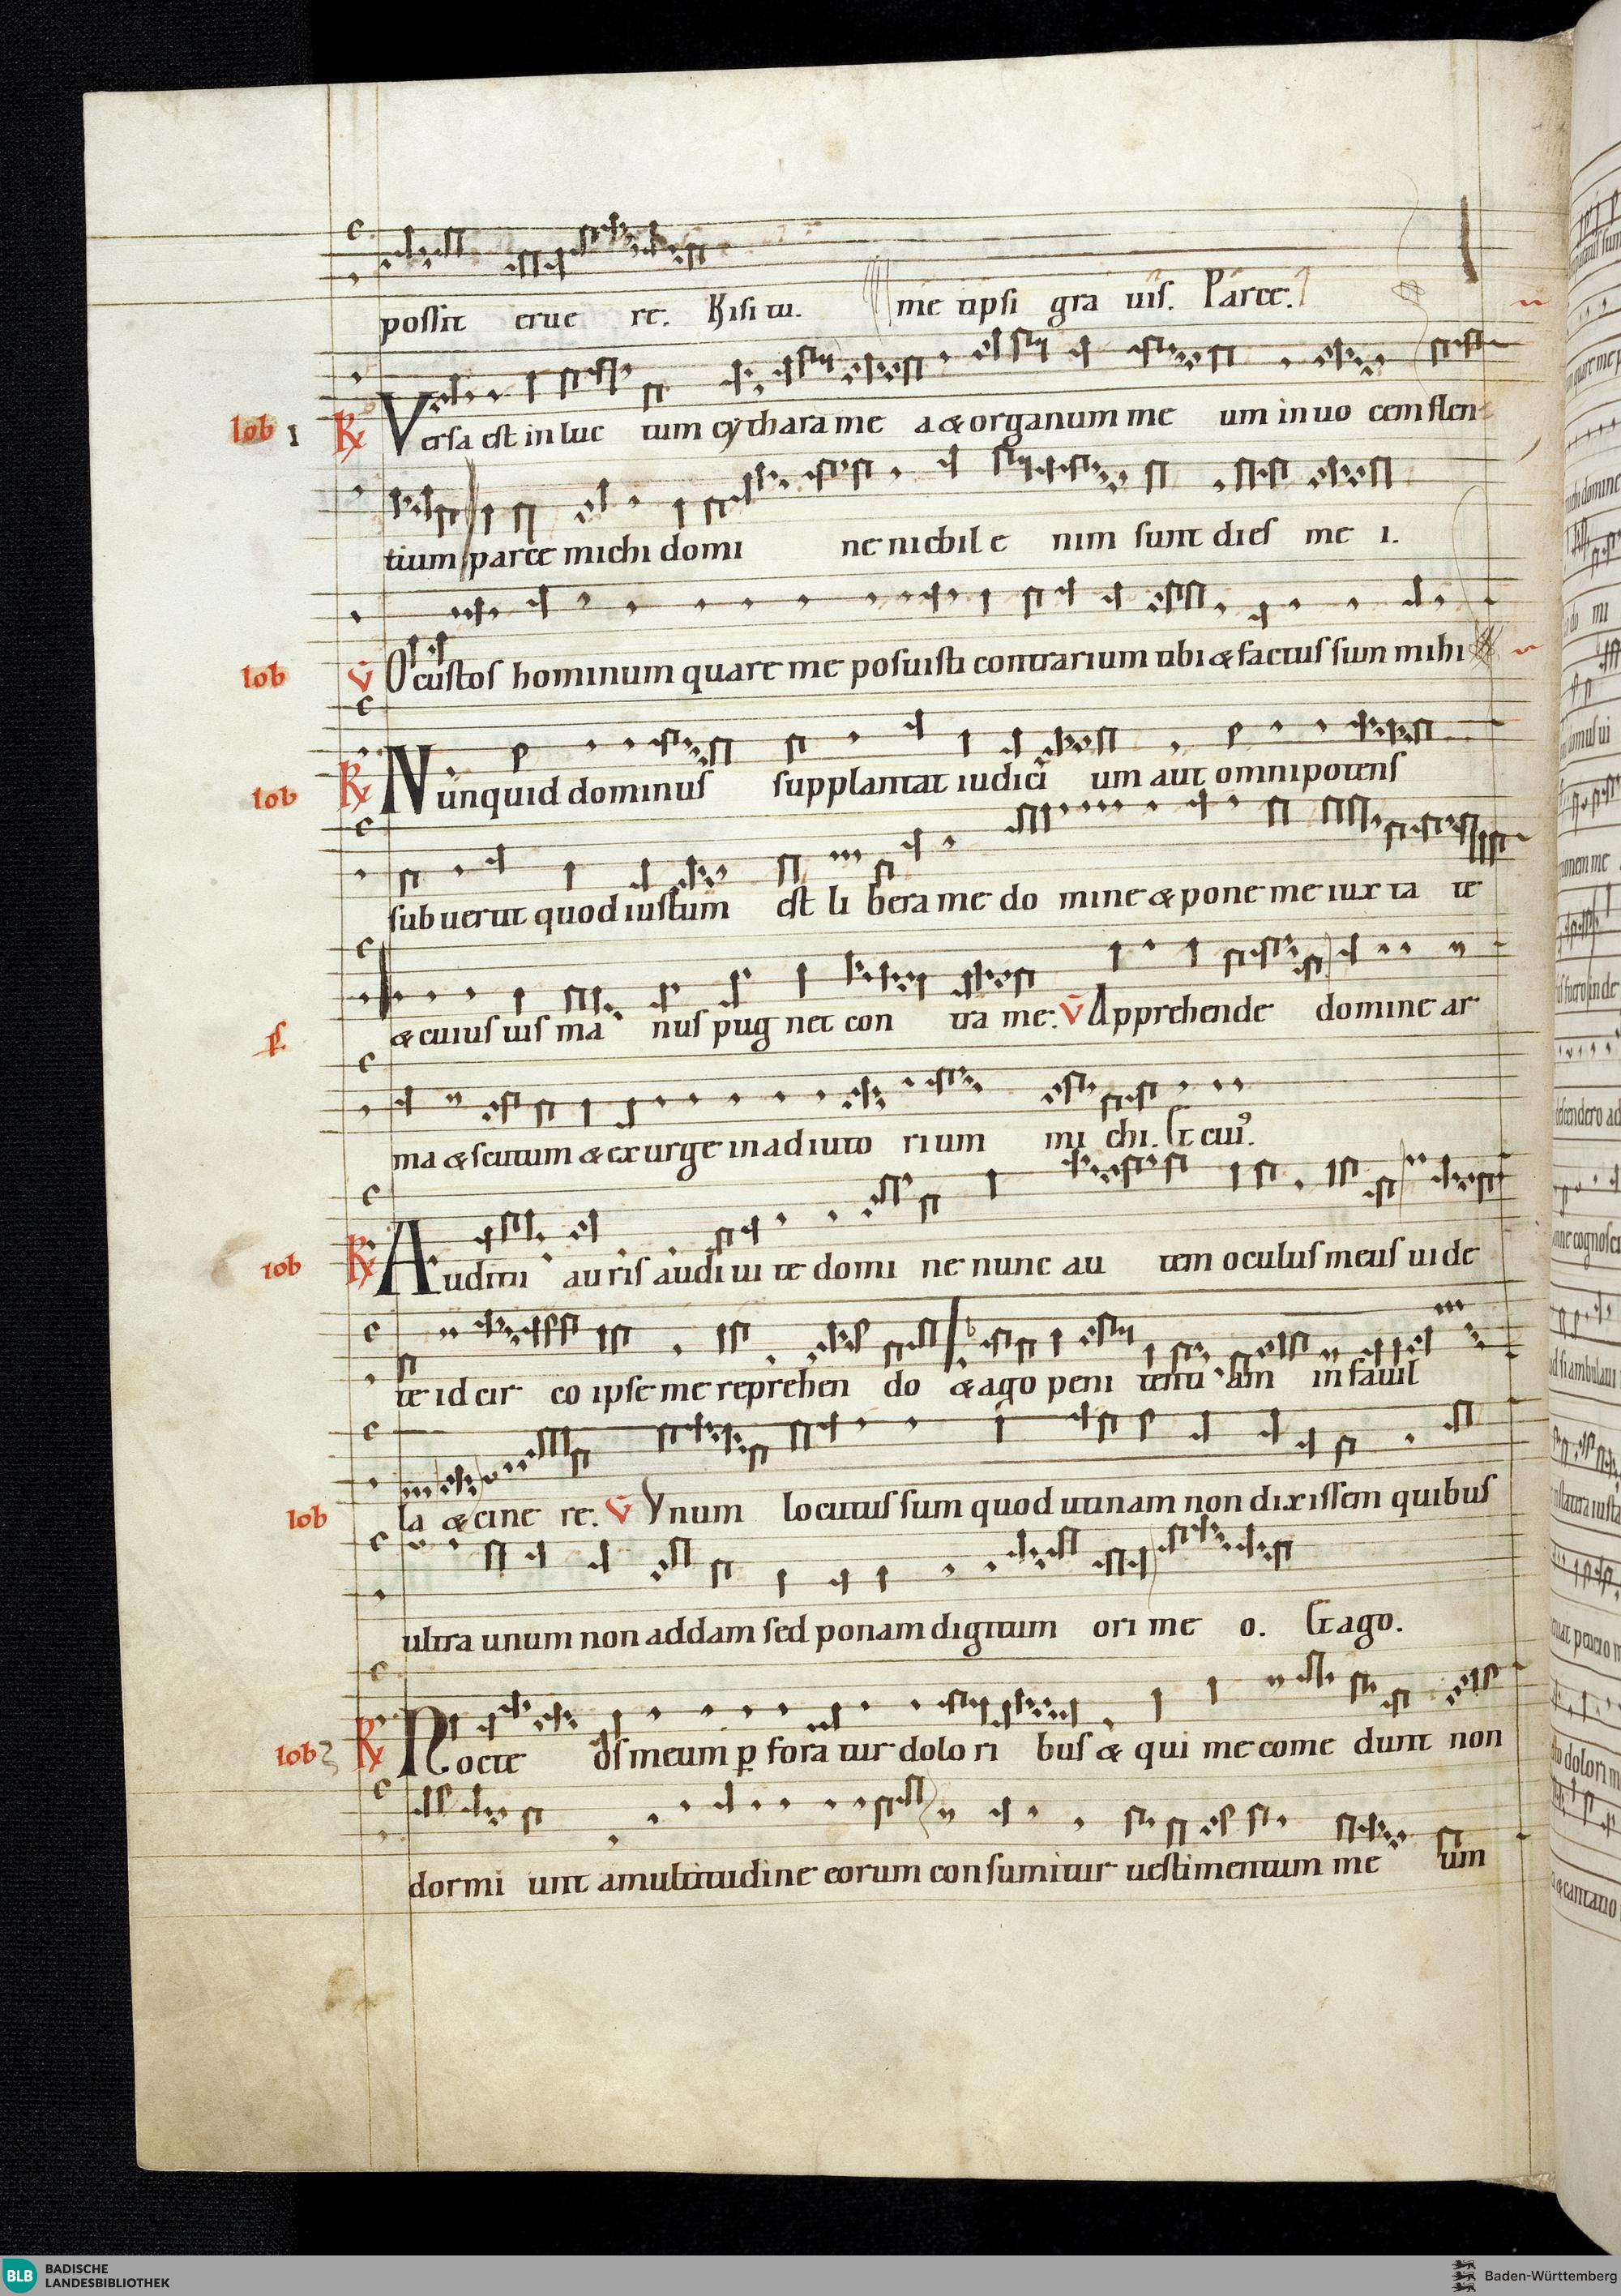 possit erue re. Nisi tu. me tipsi gra uis. Parce.
Iob 1 R Versa est in luc tum cythara me a & organum me um in uo cem flen
tium parce michi domi ne nichil e nim sunt dies me i.
Iob V O custos hominum quare me posuisti contrarium tibi & factus sum mihi
Iob R Nunquid dominus supplantat iudici um aut omnipotens
subuertit quod iustum est li bera me do mine & pone me iux ta te
& cuius uis ma nus pug net con tra me. V Apprehende domine ar
ma & scutum & exurge in adiuto rium mi chi. Et cui9.
Iob R Auditu au ris audi ui te domi ne nunc au tem oculus meus uide
te id cir co ipse me reprehen do & ago peni tenti am in fauil
Iob la & cine re. V Vnum locutus sum quod utinam non dixissem quibus
ultra unum non addam sed ponam digitum ori me o. Et ago.
Iob 2 R Nocte os meum p fora tur dolo ri bus & qui me come dunt non
dormi unt a multitudine eorum consumitur uestimentum me um
BLB BADISCHE
LANDESBIBLIOTHEK
Baden-Württemberg